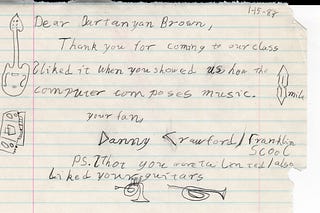 1-15-88
Dear Dartanyan Brown,
Thank you for coming to our class
I liked it when you showed us how the
computer composes music.
your fan,
Danny Crawford/Franklin
Scool
PS. I Thot you were talented/also
liked your guitars